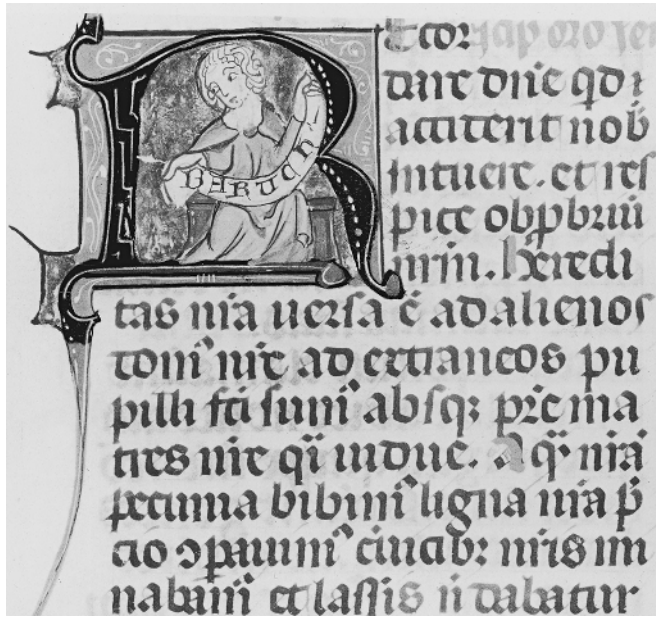 BARUCH
R Ecor Incip oro Jer
dare dn̄e qd i
acciderit nob̄
Intuere. et res
pice obꝓbriū
nrm̄. Heredi
tas nr̄a uersa ē ad alienos
domꝰ nr̄e ad extraneos pu
pilli fc̄i sumꝰ absqꝫ pr̄e ma
tres nr̄e qi uidue. Aq̄ nr̄ā
pecunia bibimꝰ ligna nr̄a p̄
cio ꝯpauimꝰ ciucibꝫ nr̄is im
nabam̄ et lassis n̄ dabatur